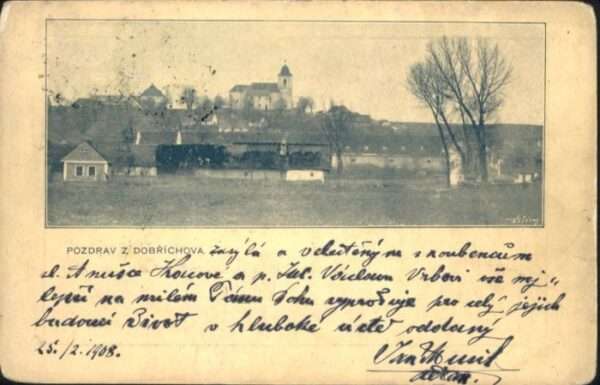 POZDRAV Z DOBŘICHOVA zasýlá a vctěným snoubencům
sl. Anušce Kouové a p. Vácslavu Vrbovi vše nej„
lepší na milém Pánu Bohu vyprošuje pro celý jejich
budoucí život v hluboké úctě oddaný
25./2. 1908. Jan
děkan.